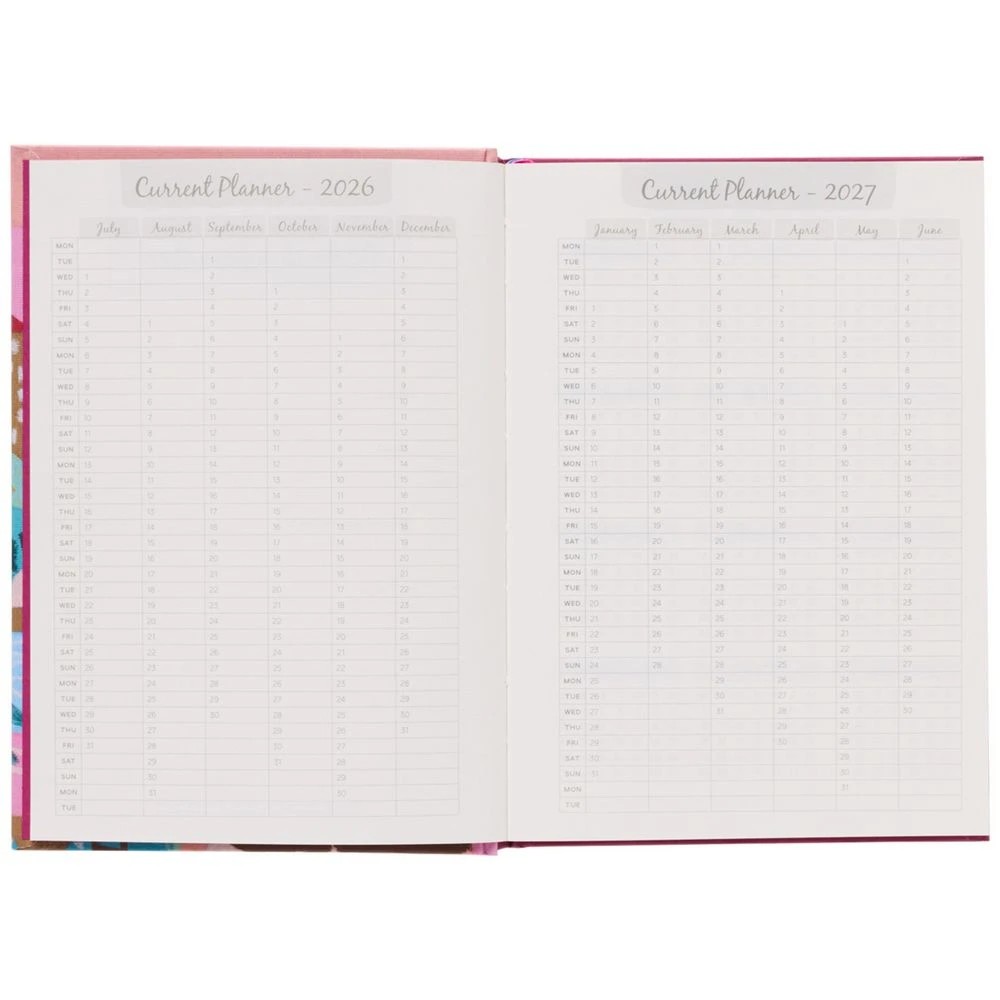 Current Planner - 2026
July August September October November December
MON
TUE 1 1
WED 1 2 2
THU 2 3 1 3
FRI 3 4 2 4
SAT 4 1 5 3 5
SUN 5 2 6 4 1 6
MON 6 3 7 5 2 7
TUE 7 4 8 6 3 8
WED 8 5 9 7 4 9
THU 9 6 10 8 5 10
FRI 10 7 11 9 6 11
SAT 11 8 12 10 7 12
SUN 12 9 13 11 8 13
MON 13 10 14 12 9 14
TUE 14 11 15 13 10 15
WED 15 12 16 14 11 16
THU 16 13 17 15 12 17
FRI 17 14 18 16 13 18
SAT 18 15 19 17 14 19
SUN 19 16 20 18 15 20
MON 20 17 21 19 16 21
TUE 21 18 22 20 17 22
WED 22 19 23 21 18 23
THU 23 20 24 22 19 24
FRI 24 21 25 23 20 25
SAT 25 22 26 24 21 26
SUN 26 23 27 25 22 27
MON 27 24 28 26 23 28
TUE 28 25 29 27 24 29
WED 29 26 30 28 25 30
THU 30 27 29 26 31
FRI 31 28 30 27
SAT 29 31 28
SUN 30 29
MON 31 30
TUE
Current Planner - 2027
January February March April May June
MON 1 1
TUE 2 2 1
WED 3 3 2
THU 4 4 1 3
FRI 1 5 5 2 4
SAT 2 6 6 3 1 5
SUN 3 7 7 4 2 6
MON 4 8 8 5 3 7
TUE 5 9 9 6 4 8
WED 6 10 10 7 5 9
THU 7 11 11 8 6 10
FRI 8 12 12 9 7 11
SAT 9 13 13 10 8 12
SUN 10 14 14 11 9 13
MON 11 15 15 12 10 14
TUE 12 16 16 13 11 15
WED 13 17 17 14 12 16
THU 14 18 18 15 13 17
FRI 15 19 19 16 14 18
SAT 16 20 20 17 15 19
SUN 17 21 21 18 16 20
MON 18 22 22 19 17 21
TUE 19 23 23 20 18 22
WED 20 24 24 21 19 23
THU 21 25 25 22 20 24
FRI 22 26 26 23 21 25
SAT 23 27 27 24 22 26
SUN 24 28 28 25 23 27
MON 25 29 26 24 28
TUE 26 30 27 25 29
WED 27 31 28 26 30
THU 28 29 27
FRI 29 30 28
SAT 30 29
SUN 31 30
MON 31
TUE